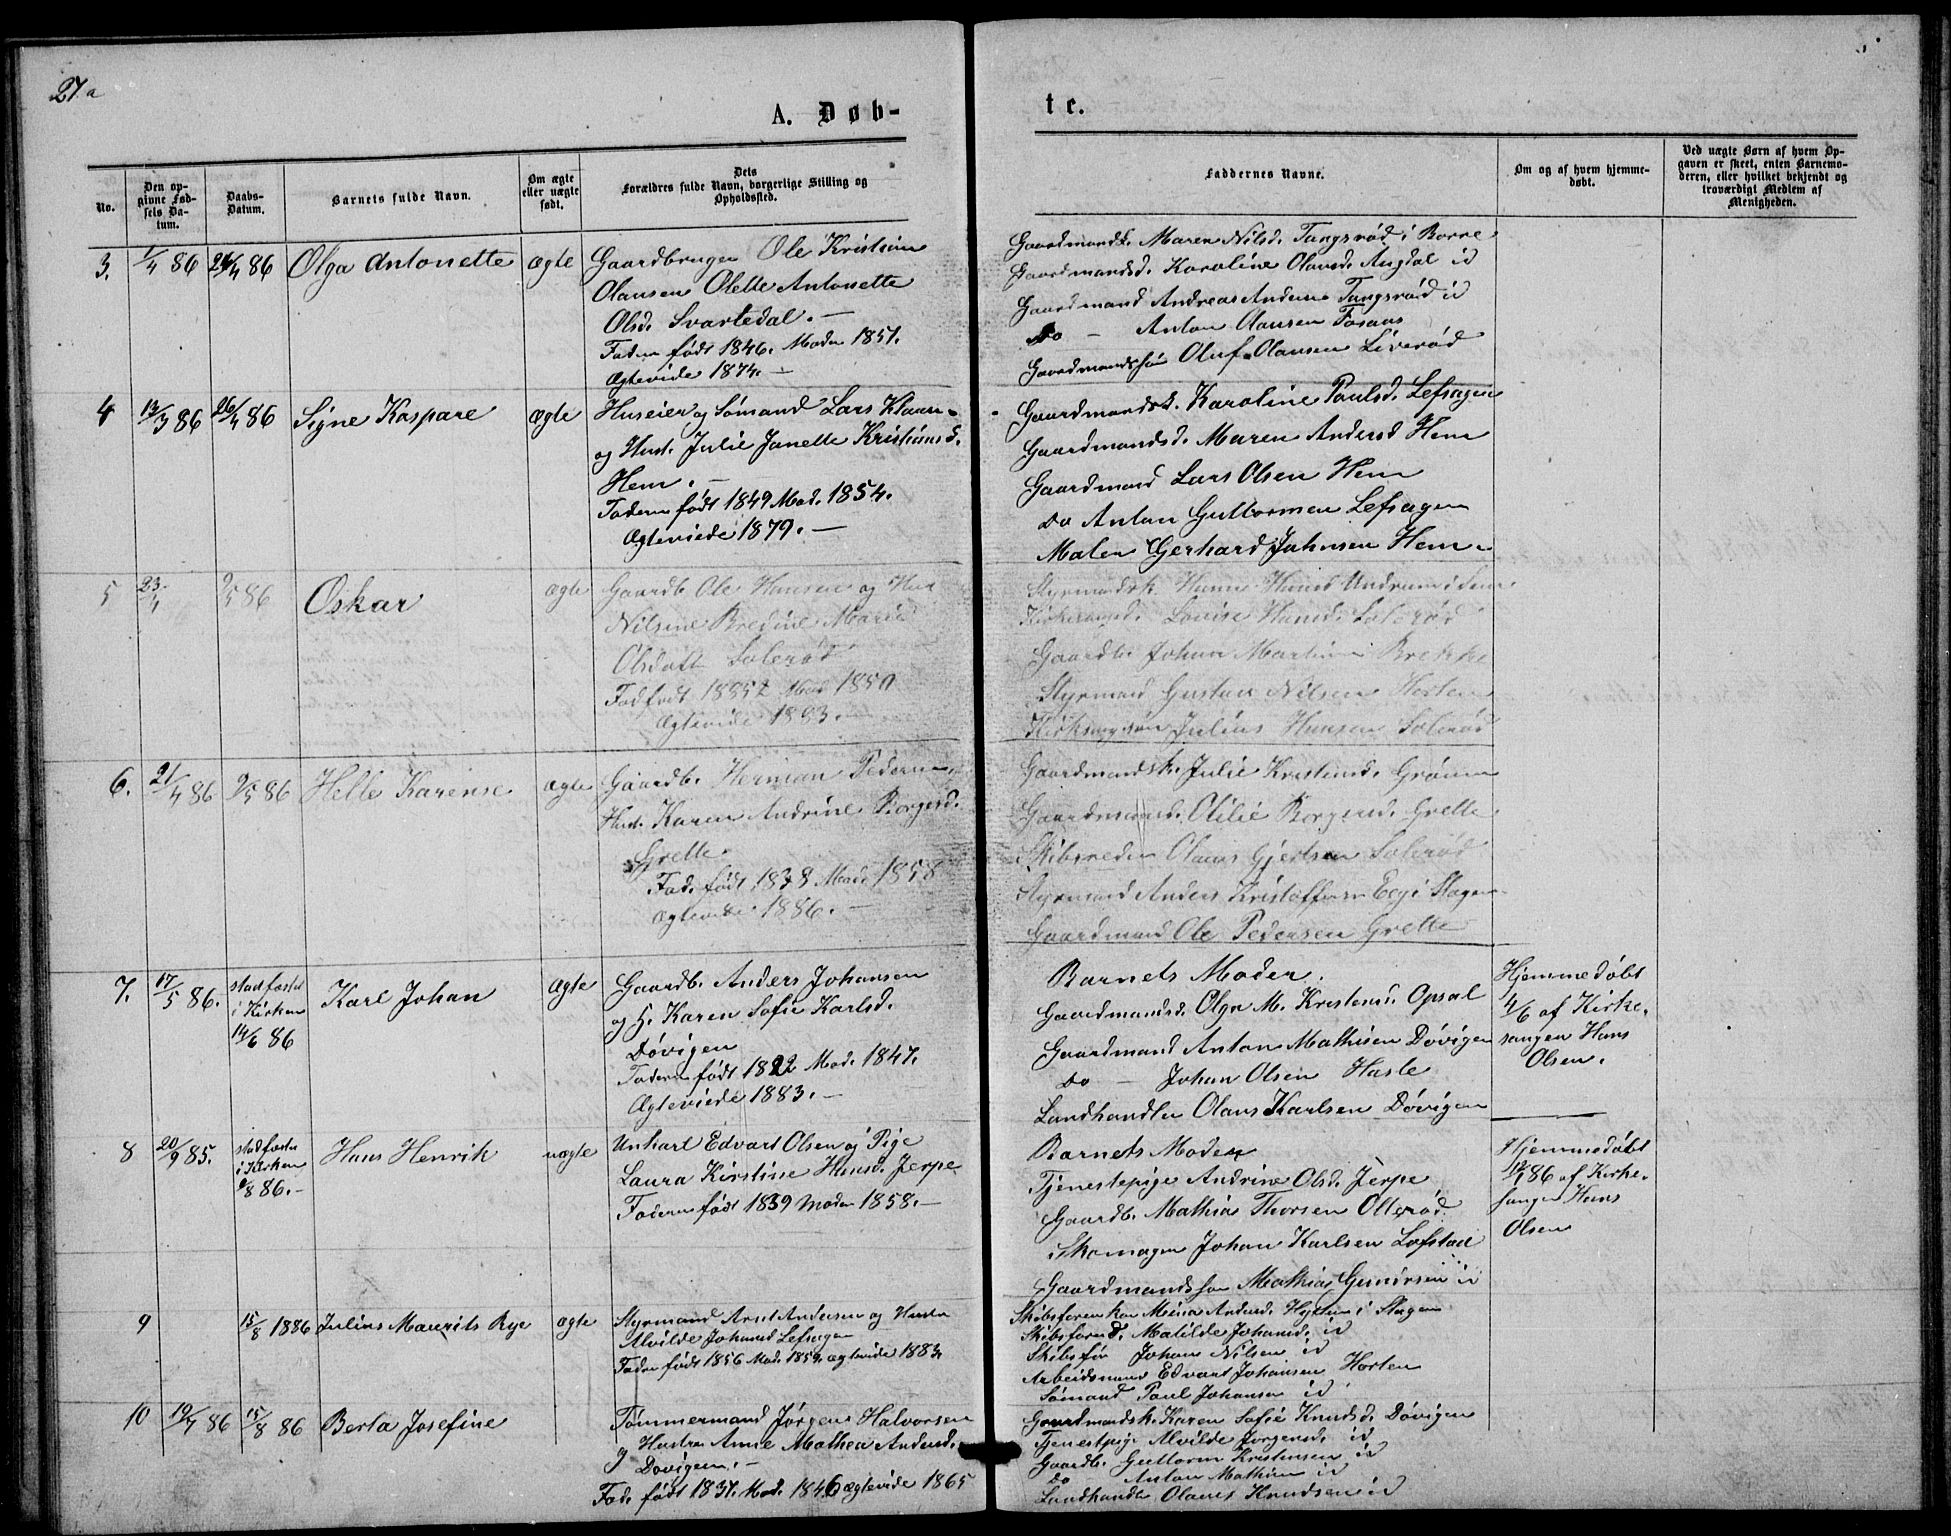 27a
A. Døb-
te.
No.
Den op-
givne Fød-
sels Da-
tum.
Daabs-
Datum.
Barnets fulde Navn.
Om ægte
eller uægte
født.
Dets
Forældres fulde Navn, borgerlige Stilling og
Opholdssted.
Faddernes Navne.
Om og af hvem hjemme-
døbt.
Ved uægte Børn af hvem Op-
gaven er skeet, enten Barnemo-
deren, eller hvilket bekjendt og
troværdigt Medlem af
Menigheden.
3. 1/4 86 26/4 86 Olga Antonette ægte
Gaardbruger Ole Kristian
Olausen Olette Antonette
Olsd. Svartedal. —
Faderen født 1846. Moder 1851.
Ægteviede 1874. —
Gaardmandsk. Maren Nilsd. Tangsrød i Borre
Gaardmandsd. Karoline Olausd. Augdal id
Gaardmand Andreas Anderse Tangsrød id
Do — Anton Olausen Fosaas
Gaardmandssøn Oluf Olausen Liverød
4 13/3 86 26/4 86 Signe Kaspare ægte
Huseier og Sømand Lars Klausen
og Hust. Julie Janette Kristiansd.
Hem. —
Faderen født 1849 Mod. 1854.
Ægteviede 1879. —
Gaardmandsk. Karoline Paulsd. Lefsagen
Gaardmandsd. Maren Andersd Hem
Gaardmand Lars Olsen Hem
Do Anton Guttormsen Lefsagen
Maler Gerhard Johnsen Hem
5 23/4 9/5 86 Oskar ægte
Gaardb. Ole Hansen og Hus
Nilsine Bredine Marie
Olsdatt Solerød
Fad født 1852 Mod 1850
Ægteviede 1883. —
Styrmandsk. Hanna Hansd Undrum i Sem
Kirkesangerd. Lovise Hansd. Solerød
Gaardb. Johan Martin Brekke
Styrmand Gustav Nilsen Horten
Kirkesangersøn Julius Hansen Solerød
6. 21/4 86 9/5 86 Helle Karense ægte
Gaardb. Herman Pedersen
Hust. Karen Andrine Borgersd.
Grette
Fad. født 1838 Mod. 1858
Ægteviede 1886. —
Gaardmandsk. Julie Kristiansd.
Gaardmandsd. Otilie Borgersd. Grette
Skibsreder Olaus Gjertsen Solerød
Styrmand Anders Kristoffersen i Slagen
Gaardmand Ole Pedersen Grette
7. 17/5 86. stadfæstet
i Kirken
14/6 86
Karl Johan ægte
Gaardb. Anders Johansen
og H. Karen Sofie Karlsd.
Døvigen
Faderen født 1822 Mod. 1847.
Ægteviede 1883. —
Barnets Moder.
Gaardmandsd. Olga M. Kristensd. Opsal
Gaardmand Anton Mathisen Døvigen
Do — Johan Olsen Hasle
Landhandler Olaus Karlsen Døvigen
Hjemmedøbt
4/6 af Kirke-
sangen Hans
Olsen.
8 20/9 85. stadfæstet
i Kirken
/8 86. —
Hans Henrik uægte
Unkarl Edvart Olsen og Pige
Laura Kirstine Hansd. Jerpe
Faderen født 1839 Moder 1858. —
Barnets Moder
Tjenestepige Andrine Olsd. Jerpe
Gaardb. Mathias Thorsen Ollerød
Skomager Johan Karlsen Lofstad
Gaardmandssøn Mathias Gunnersen id
Hjemmedøbt
86 af Kirke-
sanger Hans
Olsen
9 15/8 1886 Julius Maurits Rye ægte
Styrmand Arnt Andersen og Hustr
Alvilde Johansd Lefsagen
Faderen født 1856 Mod. 1859. ægteviede 1883.
Skibsførerkon Mina Andersd. i Slagen
Skibsførerd. Matilde Johansd. id
Skibsfør Johan Nilsen id
Arbeidsmand Edvart Johansen Horten
Sømand Paul Johansen id
10 19/7 86 15/8 86 Berta Josefine
Tømmermand Jørgen Halvorsen
og Hustru Anne Mathea Andersd.
Døvigen. —
Fad. født 1837. Mod. 1846 ægteviede 1865
Gaardmandsk. Karen Sofie Knudsd. Døvigen
Tjenestpige Alvilde Jørgensd. id
Gaardb. Guttorm Kristensen id
Do — Anton Mathisen id
Landhandle Olaves Knudsen id